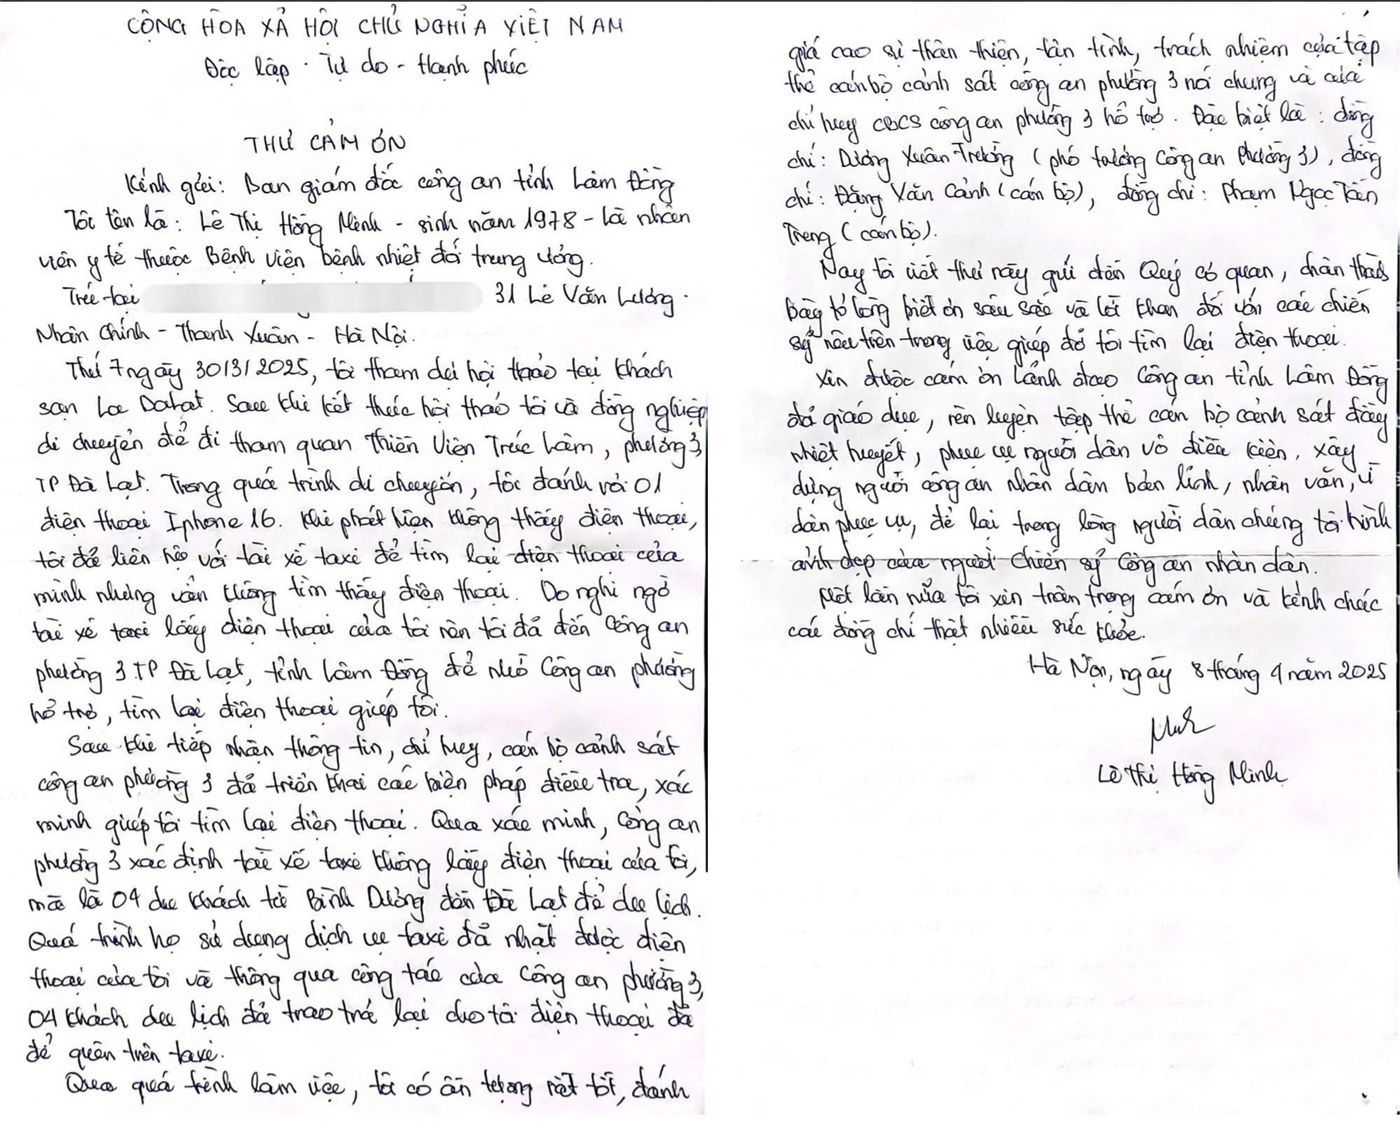 CỘNG HÒA XÃ HỘI CHỦ NGHĨA VIỆT NAM
Độc lập - Tự do - Hạnh phúc
THƯ CẢM ƠN
Kính gửi: Ban giám đốc công an tỉnh Lâm Đồng
Tôi tên là: Lê Thị Hồng Minh - sinh năm 1978 - Là nhân
viên y tế thuộc Bệnh viện bệnh nhiệt đới trung ương.
Trú tại 31 Lê Văn Lương -
Nhân Chính - Thanh Xuân - Hà Nội.
Thứ 7 ngày 30/3/2025, tôi tham dự hội thảo tại khách
sạn La Dalat. Sau khi kết thúc hội thảo tôi và đồng nghiệp
di chuyển để đi tham quan Thiền Viện Trúc Lâm, phường 3,
TP Đà Lạt. Trong quá trình di chuyển, tôi đánh rơi 01
điện thoại Iphone 16. Khi phát hiện không thấy điện thoại,
tôi đã liên hệ với tài xế taxi để tìm lại điện thoại của
mình nhưng vẫn không tìm thấy điện thoại. Do nghi ngờ
tài xế taxi lấy điện thoại của tôi nên tôi đã đến Công an
phường 3 TP Đà Lạt, tỉnh Lâm Đồng để nhờ Công an phường
hỗ trợ, tìm lại điện thoại giúp tôi.
Sau khi tiếp nhận thông tin, chỉ huy, cán bộ cảnh sát
công an phường 3 đã triển khai các biện pháp điều tra, xác
minh giúp tôi tìm lại điện thoại. Qua xác minh, Công an
phường 3 xác định tài xế taxi không lấy điện thoại của tôi,
mà là 04 du khách từ Bình Dương đến Đà Lạt để du lịch.
Quá trình họ sử dụng dịch vụ taxi đã nhặt được điện
thoại của tôi và thông qua công tác của Công an phường 3,
04 khách du lịch đã trao trả lại cho tôi điện thoại đã
để quên trên taxi.
Qua quá trình làm việc, tôi có ấn tượng rất tốt, đánh
giá cao sự thân thiện, tận tình, trách nhiệm của tập
thể cán bộ cảnh sát công an phường 3 nói chung và của
chỉ huy CBCS công an phường 3 hỗ trợ. Đặc biệt là: đồng
chí: Dương Xuân Trường (phó trưởng Công an Phường 3), đồng
chí: Đặng Văn Cảnh (cán bộ), đồng chí: Phạm Ngọc Tấn
Trung (cán bộ).
Nay tôi viết thư này gửi đến Quý cơ quan, chân thành
bày tỏ lòng biết ơn sâu sắc và lời khen đối với các chiến
sỹ nêu trên trong việc giúp đỡ tôi tìm lại điện thoại.
Xin được cảm ơn Lãnh đạo Công an tỉnh Lâm Đồng
đã giáo dục, rèn luyện tập thể cán bộ cảnh sát đầy
nhiệt huyết, phục vụ người dân vô điều kiện, xây
dựng người công an nhân dân bản lĩnh, nhân văn, vì
dân phục vụ, để lại trong lòng người dân chúng tôi hình
ảnh đẹp của người chiến sỹ Công an nhân dân.
Một lần nữa tôi xin trân trọng cảm ơn và kính chúc
các đồng chí thật nhiều sức khỏe.
Hà Nội, ngày 8 tháng 4 năm 2025
Lê Thị Hồng Minh